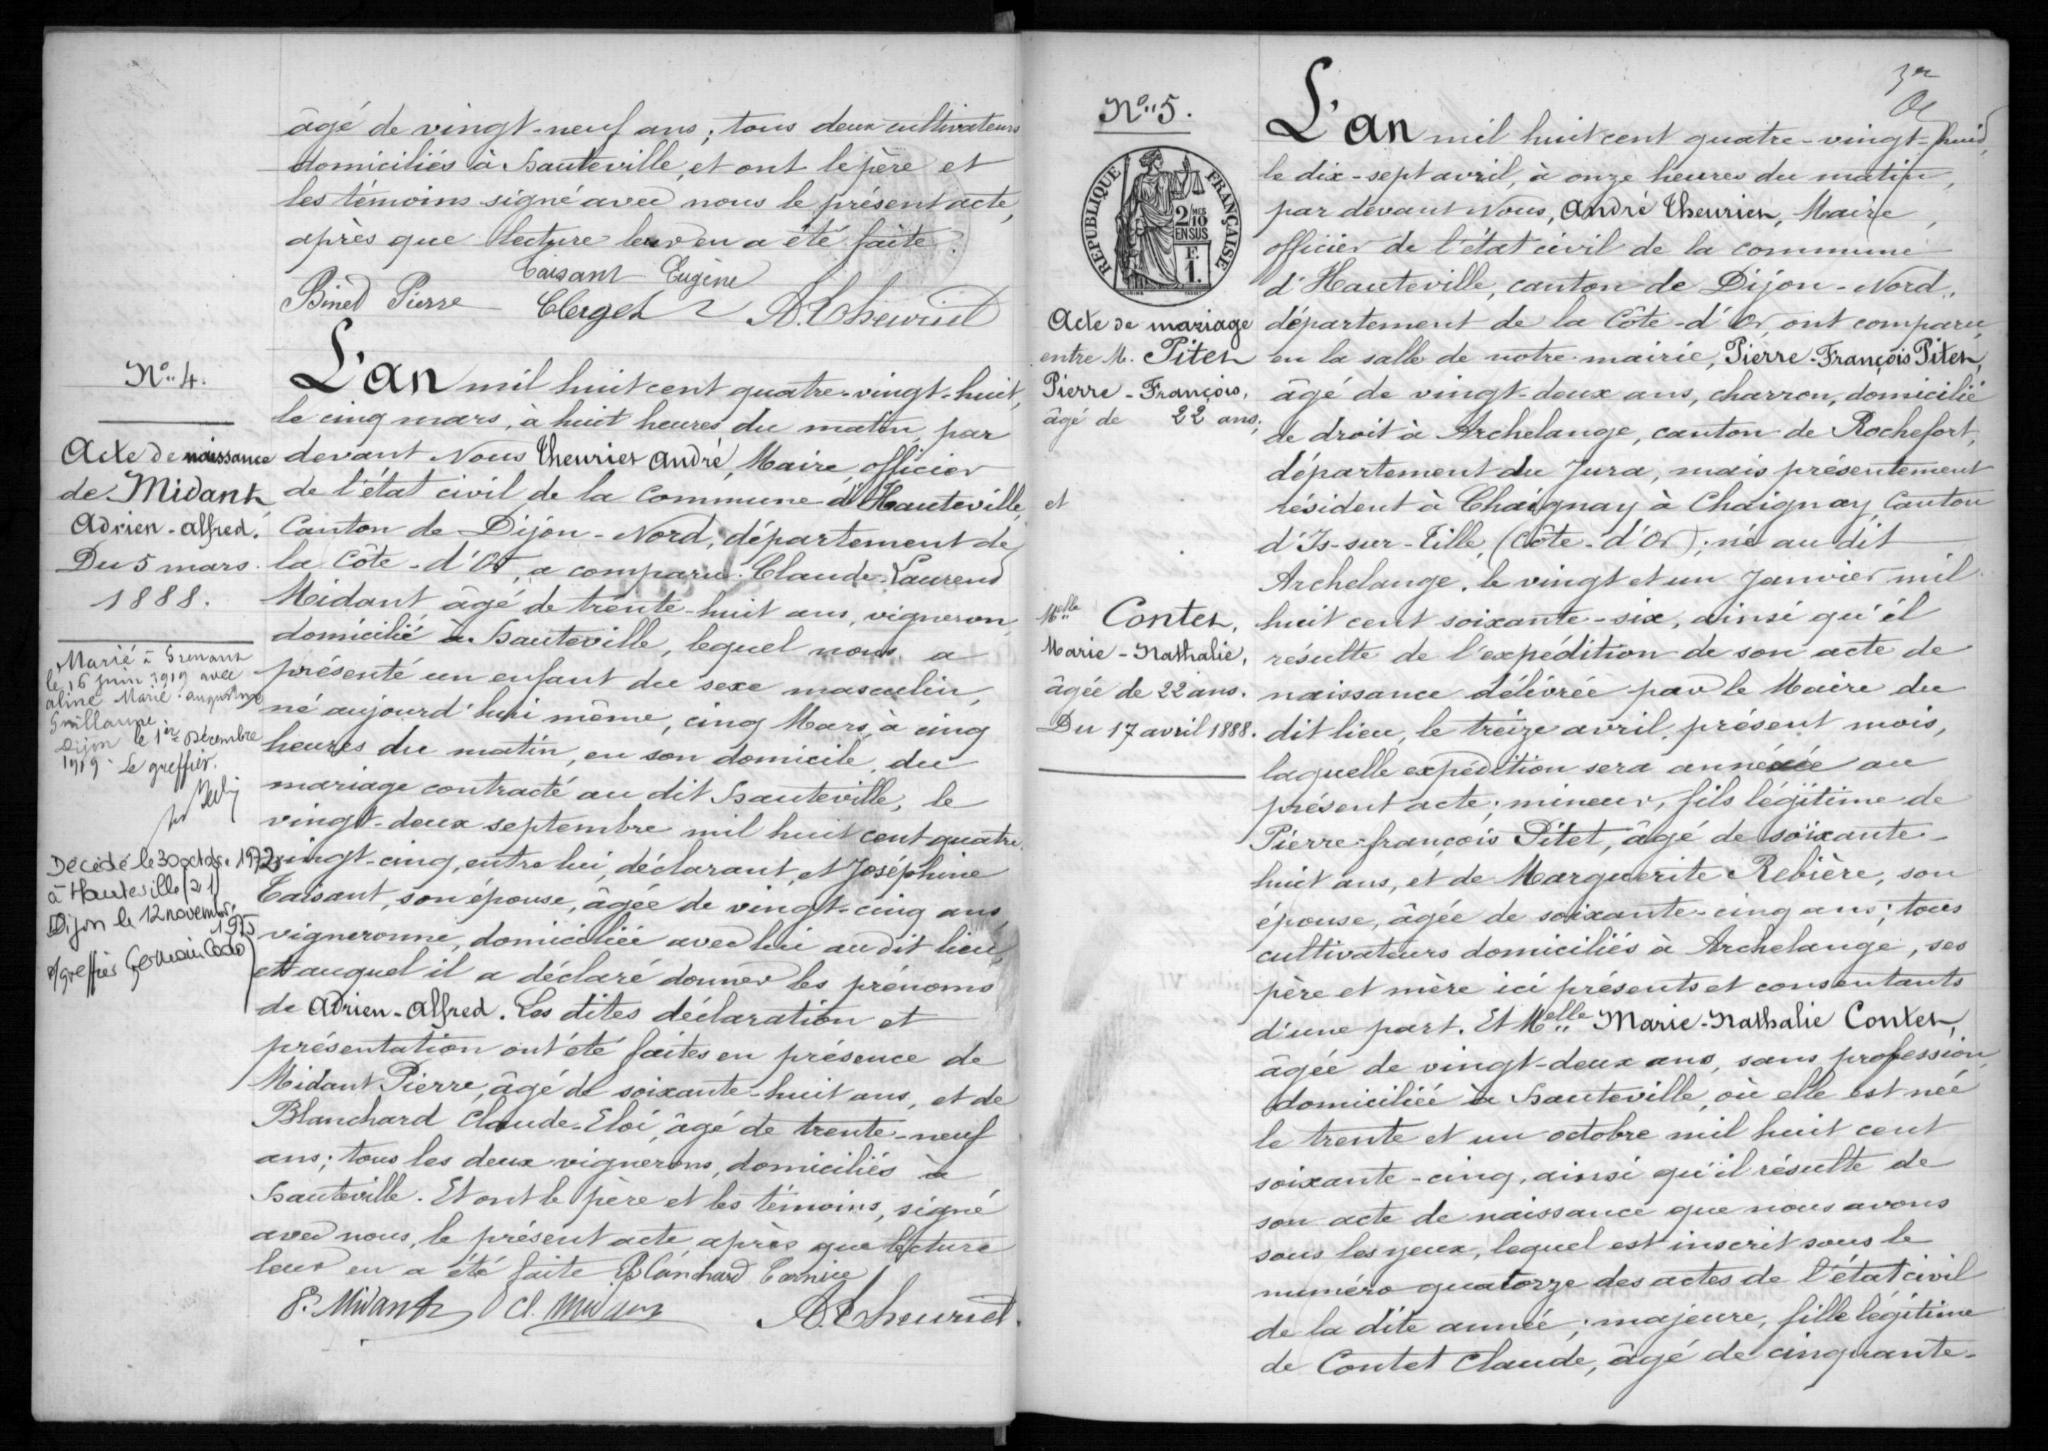 âgé de vingt-neuf ans; tous deux cultivateurs
domiciliés à Hauteville, et ont le père et
les témoins signé avec nous le présent acte,
après que lecture leur en a été faite.
Taisant Eugène
Binet Pierre Clerget A. Theuriet
N° 4.
Acte de naissance
de Midant,
Adrien-Alfred.
Du 5 mars
1888.
Marié à Grenant
le 16 juin 1919 avec
Aline Marie Augustine
Guillaume.
Dijon le 1er Décembre
1919. Le greffier.
Décédé le 30 octobre 1972
à Hauteville (21)
Dijon le 12 novembre
1975
p/ greffier Germain
L'an mil huit cent quatre-vingt-huit,
le cinq mars, à huit heures du matin, par
devant Nous Theuriet André, Maire, officier
de l'état civil de la commune d'Hauteville,
Canton de Dijon-Nord, département de
la Côte-d'Or, a comparu: Claude-Laurent
Midant, âgé de trente-huit ans, vigneron,
domicilié à Hauteville, lequel nous a
présenté un enfant du sexe masculin,
né aujourd'hui même, cinq Mars, à cinq
heures du matin, en son domicile, du
mariage contracté au dit Hauteville, le
vingt-deux septembre mil huit cent quatre
vingt-cinq, entre lui, déclarant, et Joséphine
Taisant, son épouse, âgée de vingt-cinq ans,
vigneronne, domiciliée avec lui au dit lieu,
et auquel il a déclaré donner les prénoms
de Adrien-Alfred. Les dites déclaration et
présentation ont été faites en présence de
Midant Pierre, âgé de soixante-huit ans, et de
Blanchard Claude-Eloi, âgé de trente-neuf
ans; tous les deux vignerons, domiciliés à
Hauteville. Et ont le père et les témoins, signé
avec nous, le présent acte après que lecture
leur en a été faite Blanchard
P. Midant Cl. Midant A. Theuriet
3e
N° 5.
RÉPUBLIQUE FRANÇAISE
2/10
EN SUS
F.
1.
Acte de mariage
entre M. Pitet
Pierre-François,
âgé de 22 ans,
et
Melle Contet,
Marie-Nathalie,
âgée de 22 ans.
Du 17 avril 1888.
L'an mil huit cent quatre-vingt-huit,
le dix-sept avril, à onze heures du matin,
par devant Nous, André Theuriet, Maire,
officier de l'état civil de la commune
d'Hauteville, canton de Dijon-Nord,
département de la Côte-d'Or, ont comparu
en la salle de notre mairie, Pierre-François Pitet,
âgé de vingt-deux ans, charron, domicilié
de droit à Archelange, canton de Rochefort,
département du Jura, mais présentement
résident à Chaignay à Chaignay, Canton
d'Is-sur-Tille, (Côte-d'Or); né au dit
Archelange, le vingt et un Janvier mil
huit cent soixante-six, ainsi qu'il
résulte de l'expédition de son acte de
naissance délivrée par le Maire du
dit lieu, le treize avril, présent mois,
laquelle expédition sera annexée au
présent acte; mineur, fils légitime de
Pierre-françois Pitet, âgé de soixante-
huit ans, et de Marguerite Rebière, son
épouse, âgée de soixante-cinq ans; tous
cultivateurs domiciliés à Archelange, ses
père et mère ici présents et consentants
d'une part. Et Melle Marie-Nathalie Contet,
âgée de vingt-deux ans, sans profession,
domiciliée à Hauteville, où elle est née
le trente et un octobre mil huit cent
soixante-cinq, ainsi qu'il résulte de
son acte de naissance que nous avons
sous les yeux, lequel est inscrit sous le
numéro quatorze des actes de l'état civil
de la dite année; majeure, fille légitime
de Contet Claude, âgé de cinquante-